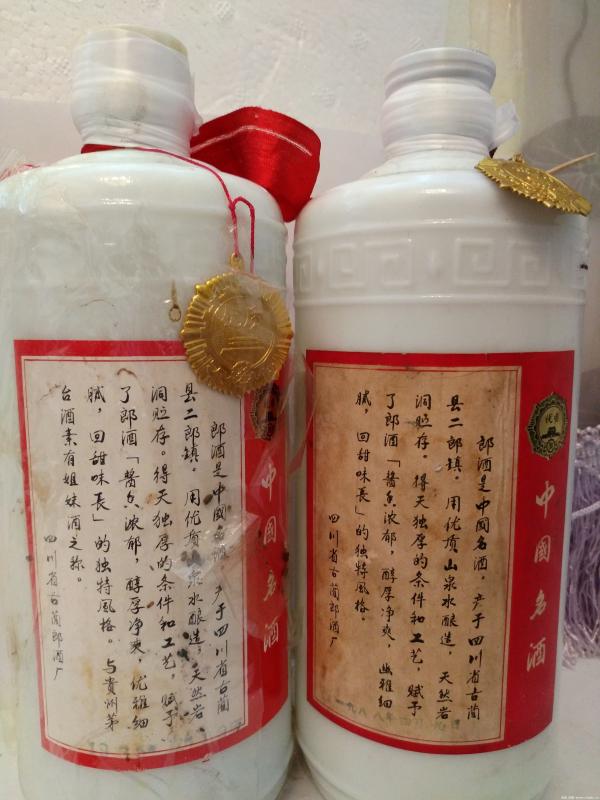 郎酒是中國名酒，产于四川省古蔺
县二郎镇。用优质山泉水酿造，天然岩
洞贮存。得天独厚的条件和工艺，赋予
了郎酒「酱香浓郁，醇厚净爽，优雅细
腻，回甜味長」的独特風格。与贵州茅
台酒素有姐妹酒之称。
四川省古蔺郎酒厂
中國名酒
郎酒是中國名酒，产于四川省古蔺
县二郎镇。用优质山泉水酿造，天然岩
洞贮存。得天独厚的条件和工艺，赋予
了郎酒「酱香浓郁，醇厚净爽，幽雅细
腻，回甜味長」的独特風格。
四川省古蔺郎酒厂
一九八八年四月
中國名酒